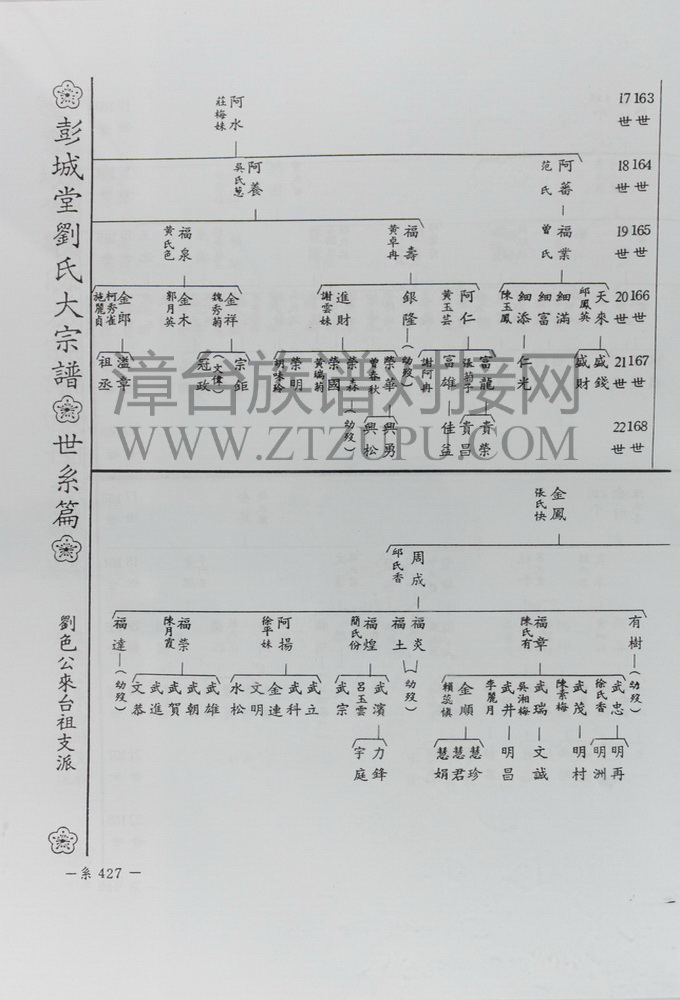 彭城堂劉氏大宗譜 世系篇
劉色公來台祖支派
—系 427 —
17 163
世 世
18 164
世 世
19 165
世 世
20 166
世 世
21 167
世 世
22 168
世 世
阿水
莊梅妹
阿蕃
范氏
阿養
吳氏慧
福業
曾氏
福壽
黃卓冉
福泉
黃氏色
天來
邱鳳英
細滿
細富
細添
陳玉鳳
阿仁
黃玉尝
銀隆
進財
謝雲妹
金祥
魏秀菊
金木
郭月英
金郎
柯秀雀
施麗貞
盛錢
盛財
仁光
富龍
張菊子
富雄
謝阿冉
(幼歿)
榮華
曾春秋
榮森
(幼歿)
榮國
黃瑞菊
榮明
胡味珍
宗鉅
(文偉)
冠政
溢章
祖丞
貴榮
貴昌
佳益
興勇
興松
漳台族谱对接网
WWW.ZTZUPU.COM
金鳳
張氏快
周成
邱氏香
有樹
(幼歿)
福章
陳氏有
福炎
福土
(幼歿)
福煌
簡氏份
阿揚
徐平妹
福榮
陳月霞
福達
(幼歿)
武忠
徐氏香
武茂
陳素梅
武瑞
吳湘梅
武井
李麗月
金順
賴蕊慎
武濱
呂玉雲
武宗
武立
武科
金連
文明
水松
武雄
武朝
武賀
武進
文恭
明再
明洲
明村
文誠
明昌
慧珍
慧君
慧娟
力鋒
宇庭